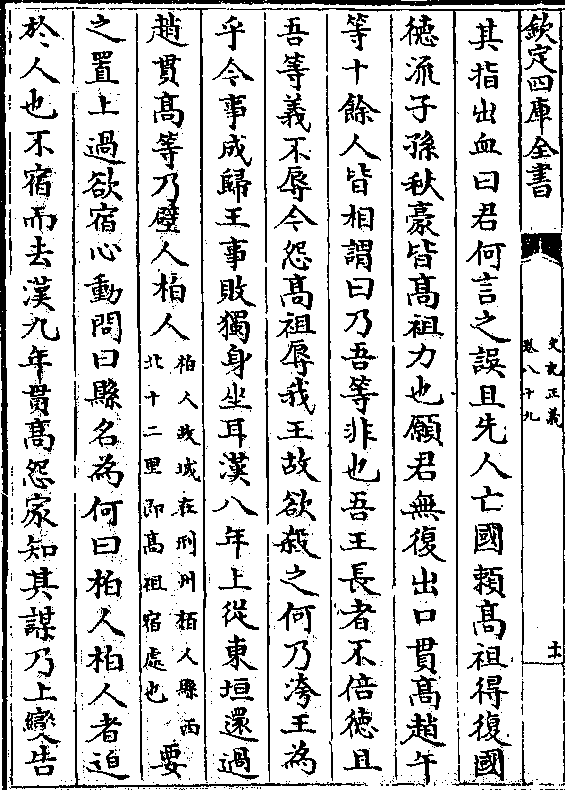 欽定四庫全書
史記正義
卷八十九
十一
其指出血曰君何言之誤且先人亡國賴髙祖得復國
徳流子孫秋豪皆髙祖力也願君無復出口貫髙趙午
等十餘人皆相謂曰乃吾等非也吾王長者不倍徳且
吾等義不辱今怨髙祖辱我王故欲殺之何乃洿王為
乎今事成歸王事敗獨身坐耳漢八年上從東垣還過
趙貫髙等乃壁人柏人柏人故城在刑州栢人縣西北十二里即髙祖宿處也要
之置上過欲宿心動問曰縣名為何曰柏人柏人者迫
於人也不宿而去漢九年貫髙怨家知其謀乃上變告